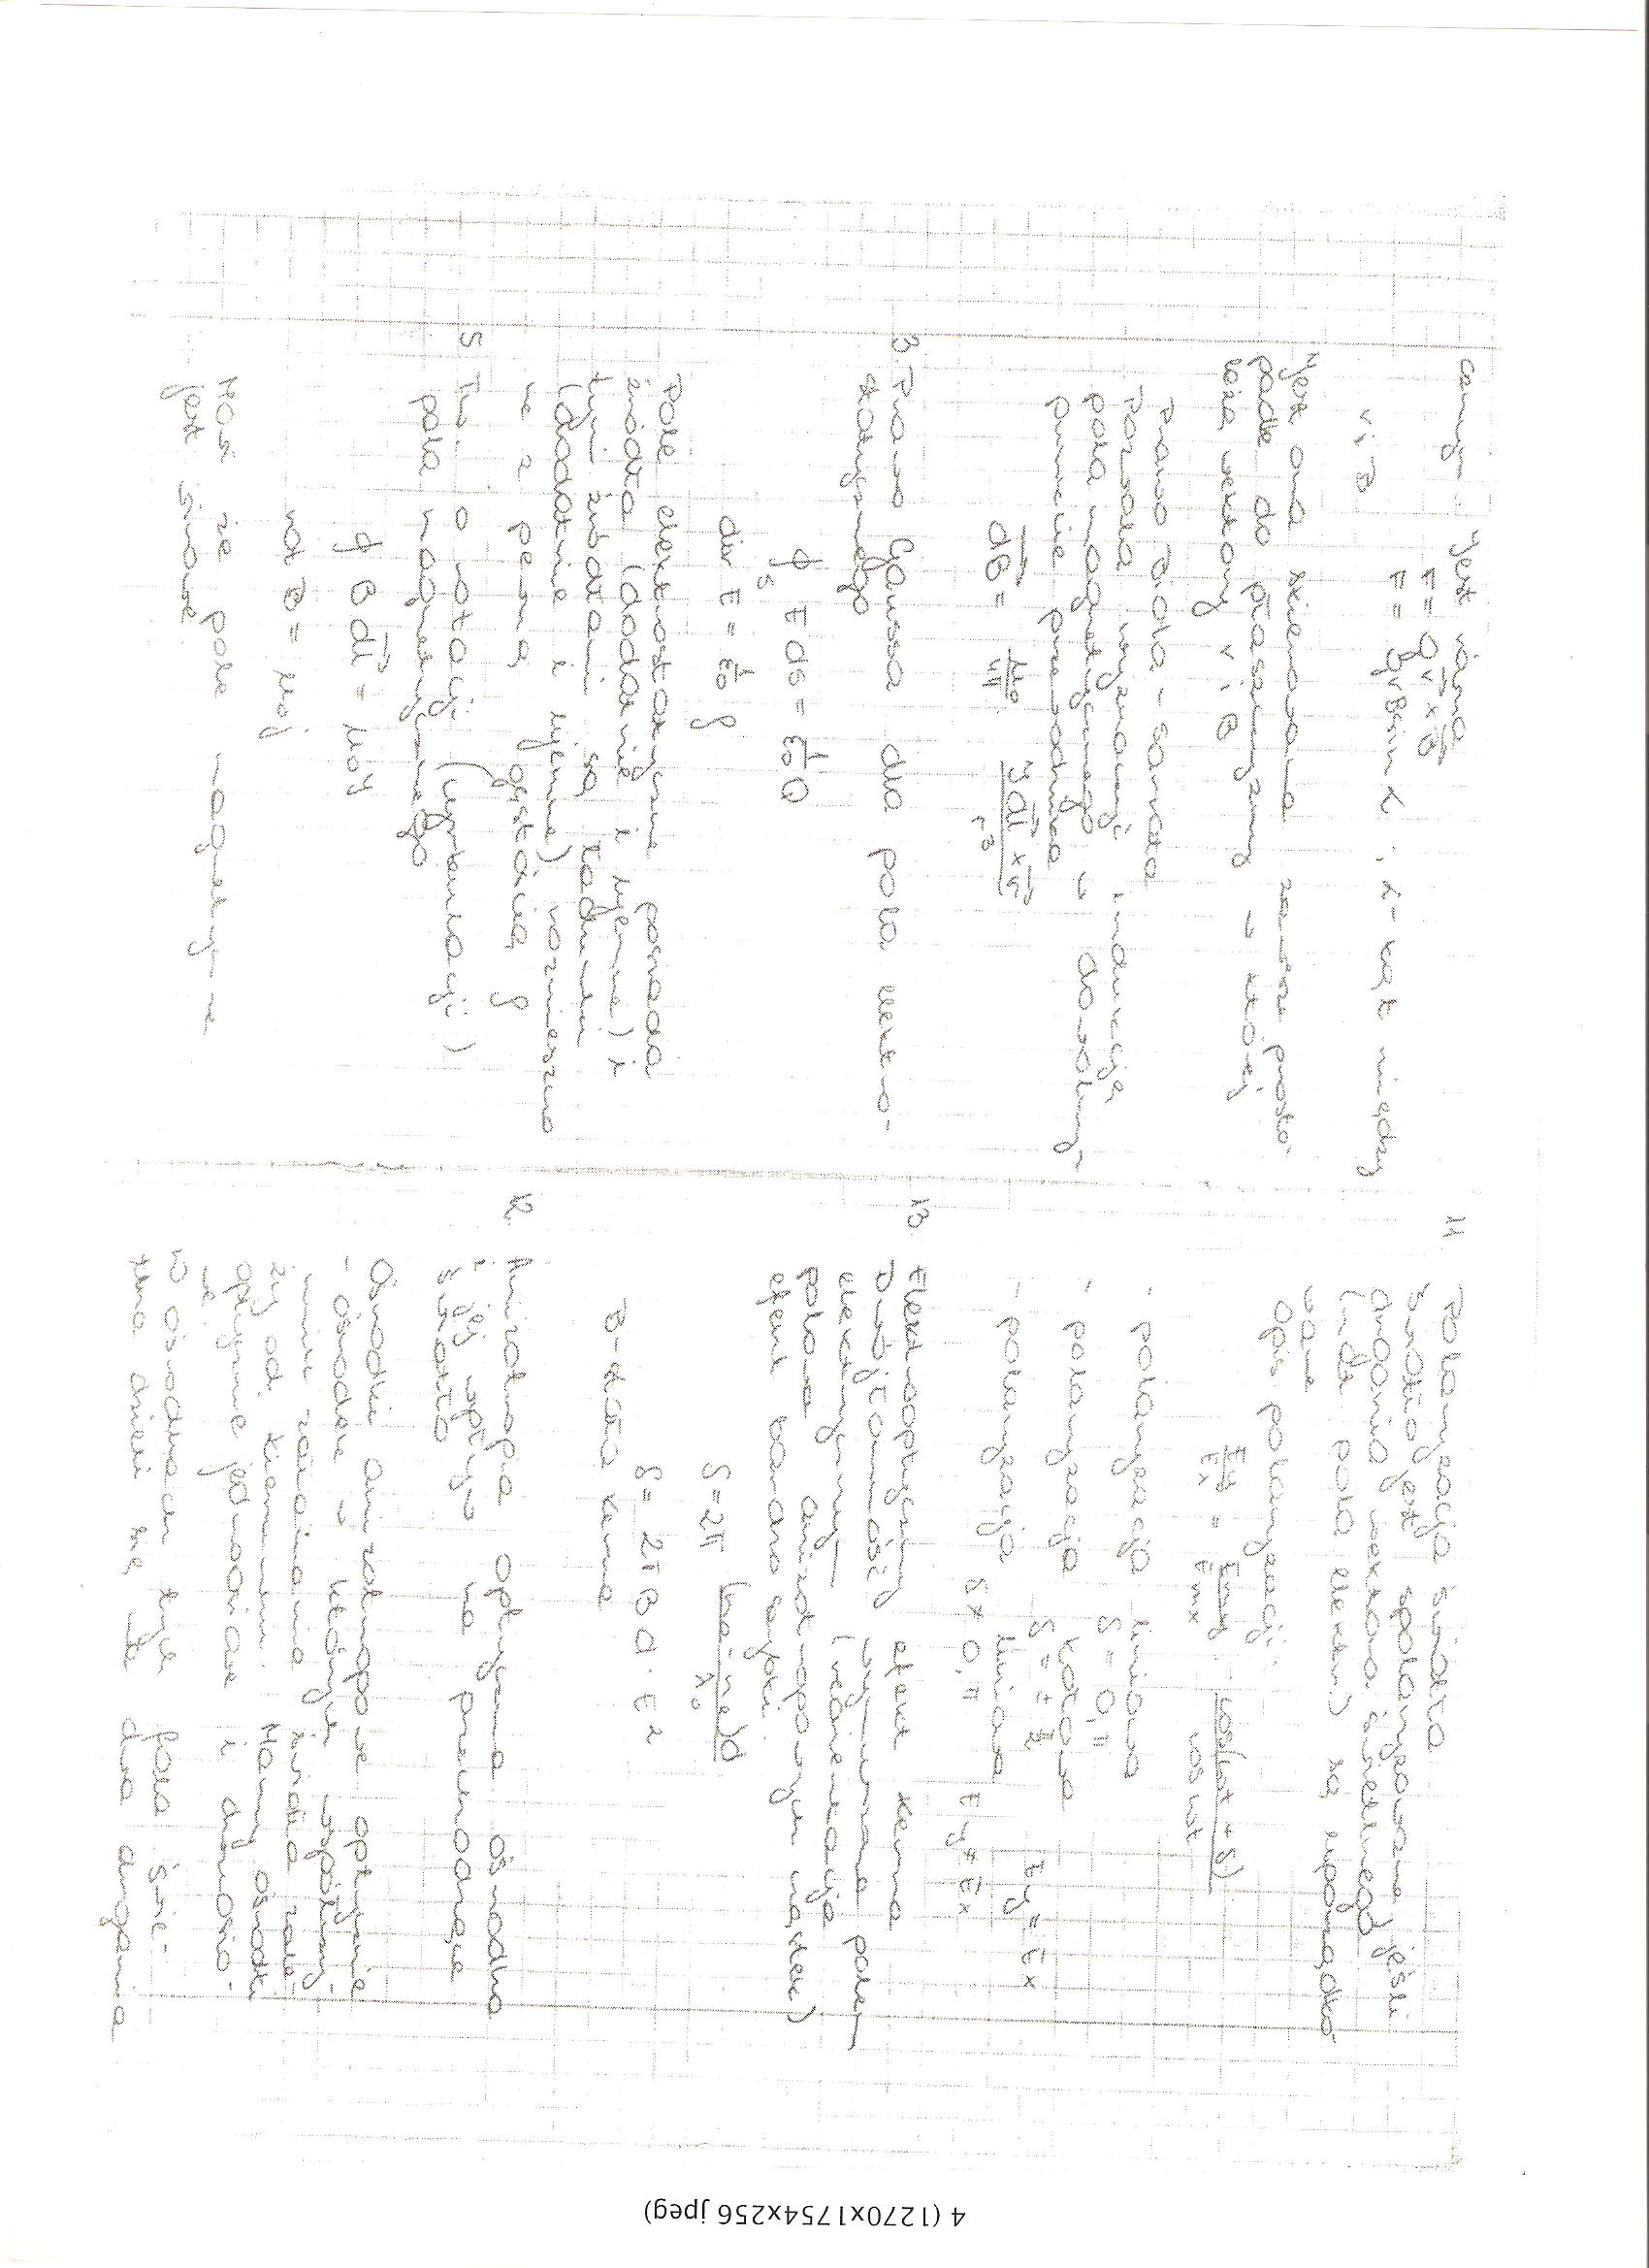 canym. Jest równa
F = qv × B
F = qvBsin α , α - kąt między
v i B
Jest ona skierowana zawsze prosto-
padle do płaszczyzny w której
leżą wektory v i B
Prawo Biota - Savarta
Pozwala wyznaczyć indukcję
pola magnetycznego w dowolnym
punkcie przewodnika
dB = μ0/4π Idl × r / r³
3. Prawo Gaussa dla pola elektro-
statycznego
∮s E ds = 1/ε0 Q
div E = 1/ε0 ρ
Pole elektrostatyczne posiada
źródła (dodatnie i ujemne) i
tymi źródłami są ładunki
(dodatnie i ujemne) rozmieszczo
ne z pewną gęstością ρ
5 Tw. o rotacji (cyrkulacji)
pola magnetycznego
∮ B dl = μ0 I
rot B = μ0 j
Mówi że pole magnetyczne
jest wirowe
11. Polaryzacja światła
Światło jest spolaryzowane jeśli
drgania wektora świetlnego
(nat pola elektr) są uporządko-
wane
Opis polaryzacji:
Ey/Ex = Emy/Emx cos(ωt + δ)/cos ωt
- polaryzacja liniowa
δ = 0, π
- polaryzacja kołowa
δ = ± π/2 Ey = Ex
- polaryzacja liniowa
δ ≠ 0, π Ey ≠ Ex
13. Elektrooptyczny efekt Kerra
Dwójłomność wymuszona polem
elektrycznym (reorientacja
polowa anizotropowych cząstek)
efekt bardzo szybki.
δ = 2π (ne - no)d/λ0
δ = 2π B d · E²
B - stała Kerra
12. Anizotropia optyczna ośrodka
i jej wpływ na przechodzące
światło
Ośrodki anizotropowe optycznie
- ośrodek w których współczyn-
nik załamania światła zale-
ży od kierunku. Mamy ośrodki
optycznie jednoosiowe i dwuosio-
we.
W ośrodkach tych fala świe-
tlna dzieli się na dwa drgania
4 (1270x1754x256 jpeg)